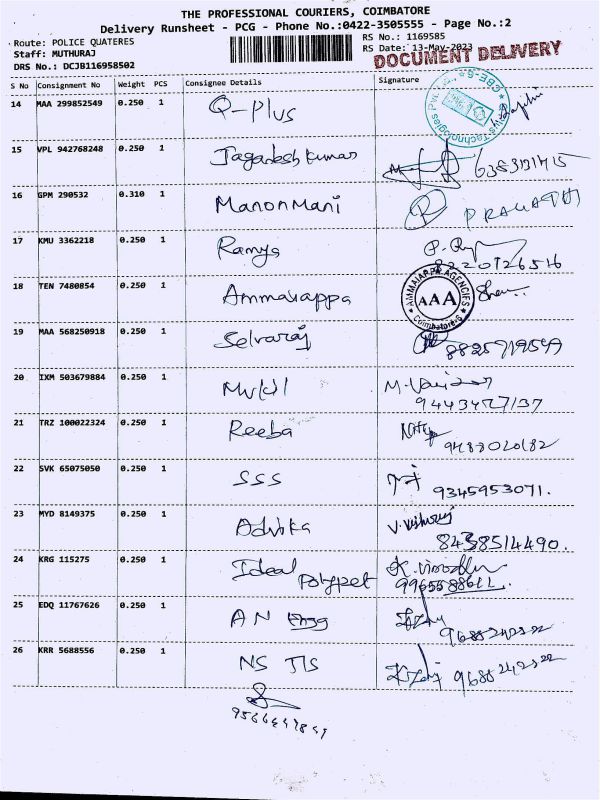 THE PROFESSIONAL COURIERS, COIMBATORE
Delivery Runsheet - PCG - Phone No.:0422-3505555 - Page No.:2
Route: POLICE QUATERES RS No.: 1169585
Staff: MUTHURAJ RS Date: 13-May-2023
DRS No.: DCJB116958502 DOCUMENT DELIVERY
S No Consignment No Weight PCS Consignee Details Signature
14 MAA 299852549 0.250 1 Q-Plus
15 VPL 942768248 0.250 1 Jaganeshkumar
16 GPM 290532 0.310 1 Manonmani PRAGATHI
17 KMU 3362218 0.250 1 Ramya P.
8220726516
18 TEN 7480854 0.250 1 Ammaiappa AMMAIAPPA AGENCIES AAA Coimbatore-6
19 MAA 568250918 0.250 1 Selvaraj
20 IXM 503679884 0.250 1 Mukil M.
21 TRZ 100022324 0.250 1 Reeba
9488020182
22 SVK 65075050 0.250 1 SSS 9345953071.
23 MYD 8149375 0.250 1 Advika V.
8438514490.
24 KRG 115275 0.250 1 Ideal Polypet K.
25 EDQ 11767626 0.250 1 AN Engg
9688242322
26 KRR 5688556 0.250 1 NS TIS 9688242322